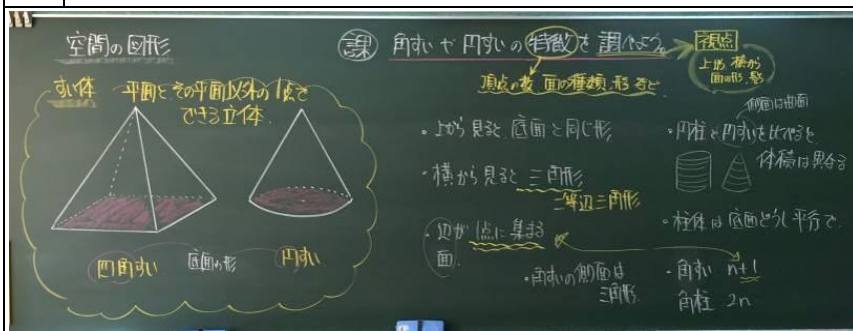 空間の図形
すい体 平面とその平面以外の1点で
できる立体.
四角すい 底面の形 円すい
課 角すいや円すいの特徴を調べよう。
視点
上から、横から
面の形、数
頂点の数、面の種類、形など
・上から見ると、底面と同じ形
・横から見ると 三角形
二等辺三角形
・辺が1点に集まる
面
・角すいの側面は
三角形.
側面は曲面
・円柱と円すいを比べると
体積は異なる
・柱体は底面どうし平行で、
・角すい n+1
角柱 2n